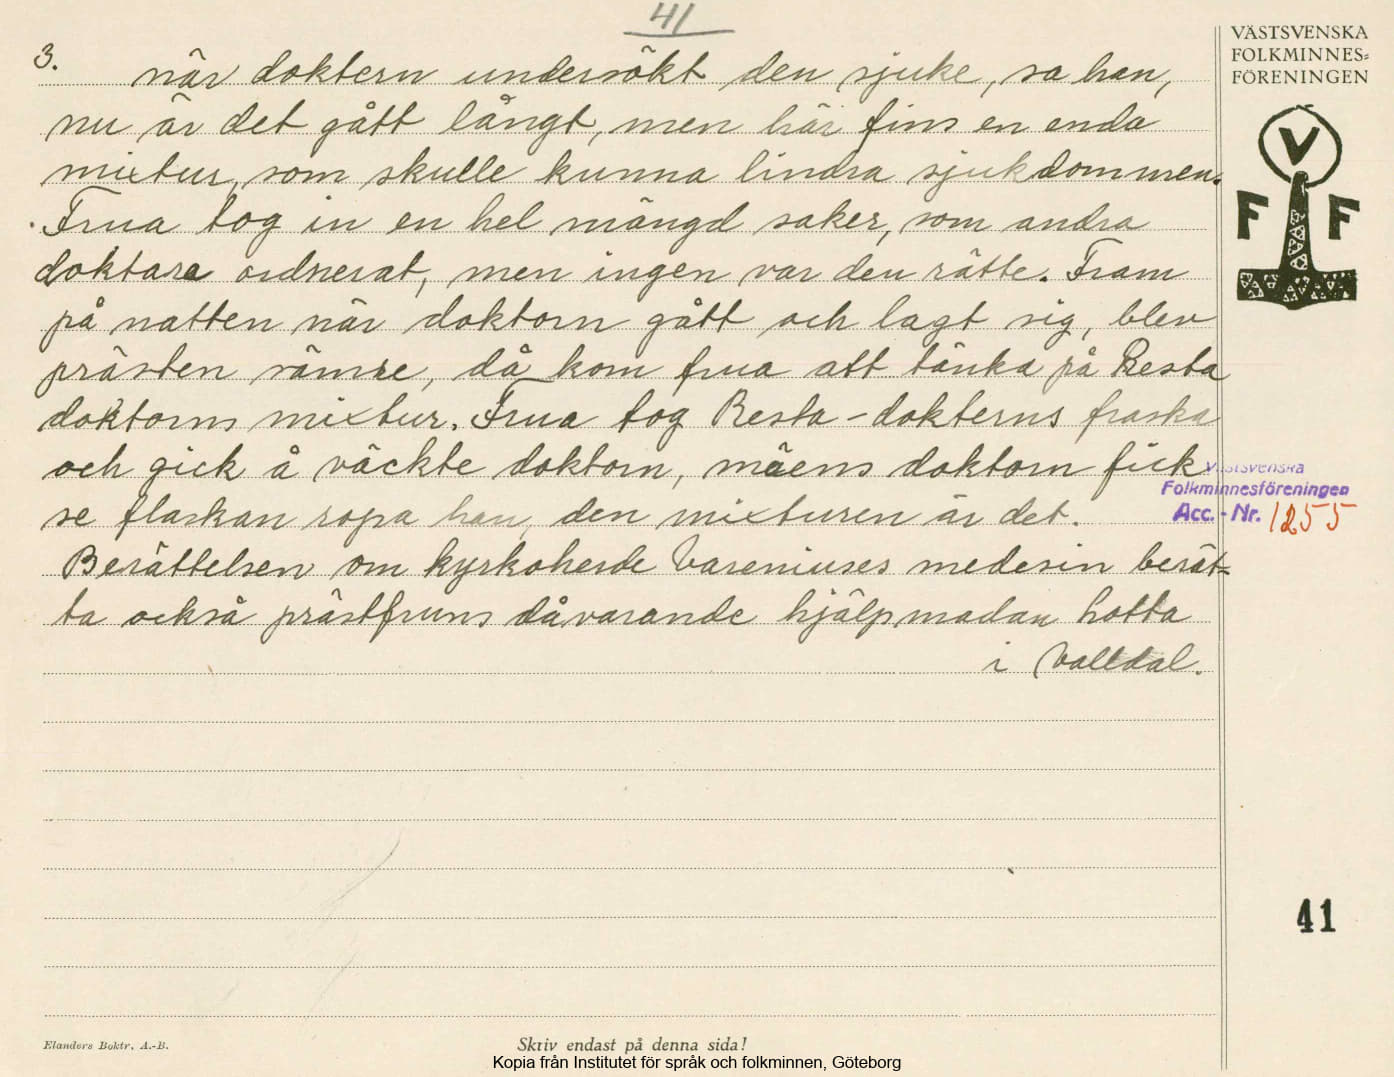 41
3. när doktern undersökt den sjuke, sa han,
nu är det gått långt, men här fins en enda
mixtur, som skulle kunna lindra sjukdommen.
Frua tog in en hel mängd saker, som andra
doktare ordnerat, men ingen var den rätte. Fram
på natten när doktorn gått och lagt sig, blev
prästen sämre, då kom frua att tänka på Resta
doktorns mixtur. Frua tog Resta-dokterns fraska
och gick å väckte doktorn, mäens doktorn fick
se flaskan ropa han, den mixturen är det.
Berättelsen om kyrkoherde Vareniuses medesin berät-
ta också prästfruns dåvarande hjälpmadam hotta
i Valldal.
VÄSTSVENSKA
FOLKMINNES=
FÖRENINGEN
V
F F
Västsvenska
Folkminnesföreningen
Acc.-Nr. 1255
41
Elanders Boktr. A.-B.
Skriv endast på denna sida!
Kopia från Institutet för språk och folkminnen, Göteborg